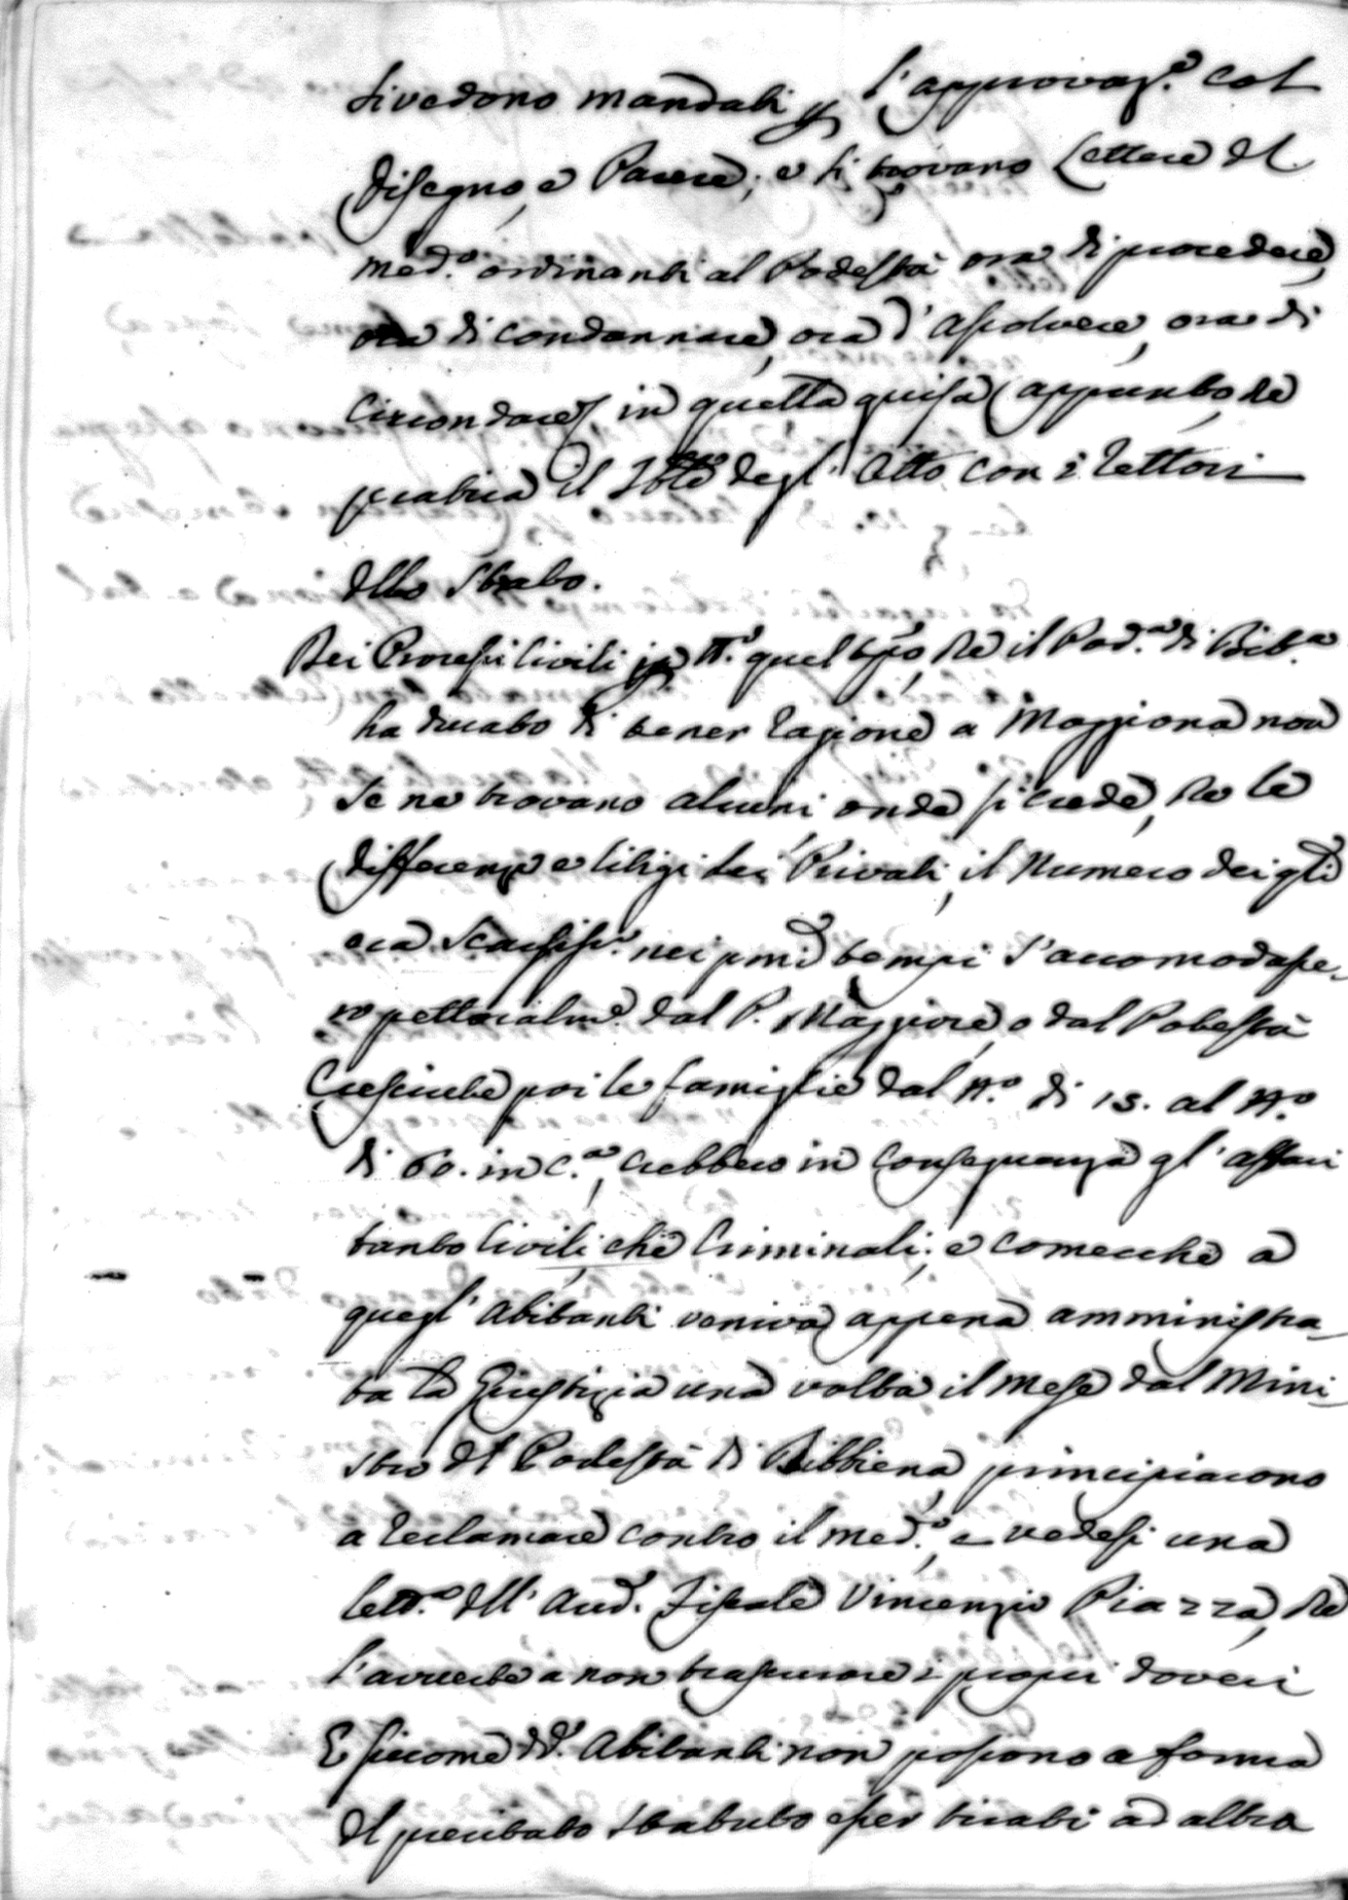 si vedono mandati p l'approvaz.e col
disegno, e Parere; e si trovano Lettere del
med.o ordinanti al Podestà ora di procedere,
ora di condannare, ora d'assolvere, ora di
circondare, in quella guisa appunto, che
pratica il degl'Otto con i Rettori
dello Stato.
Dei Processi Civili p tt.o quel tpo, che il Pod.à di Bib.a
ha durato di tener ragione a Moggiona non
se ne trovano alcuni onde si crede, che le
differenze e litigi dei Privati, il numero dei qli
era scarsiss.o nei pmi tempi s'accomodasse-
ro pettorialme. dal P. Maggiore, o dal Potestà
Cresciute poi le famiglie dal N.o di 13. al N.o
di 60. in c.a, crebbero in conseguenza gl'affari
tanto Civili, che Criminali; e comecché a
quegl'Abitanti veniva appena amministra-
ta la Giustizia una volta il mese dal Mini-
stro del Podestà di Bibbiena, principiarono
a reclamare contro il med.o, e vedesi una
lett.a dell'Aud.e Fiscale Vincenzio Piazza, che
l'avverte a non trascurare i propri doveri
E siccome dd.i Abitanti non possono a forma
del precitato Statuto esser tirati ad altra